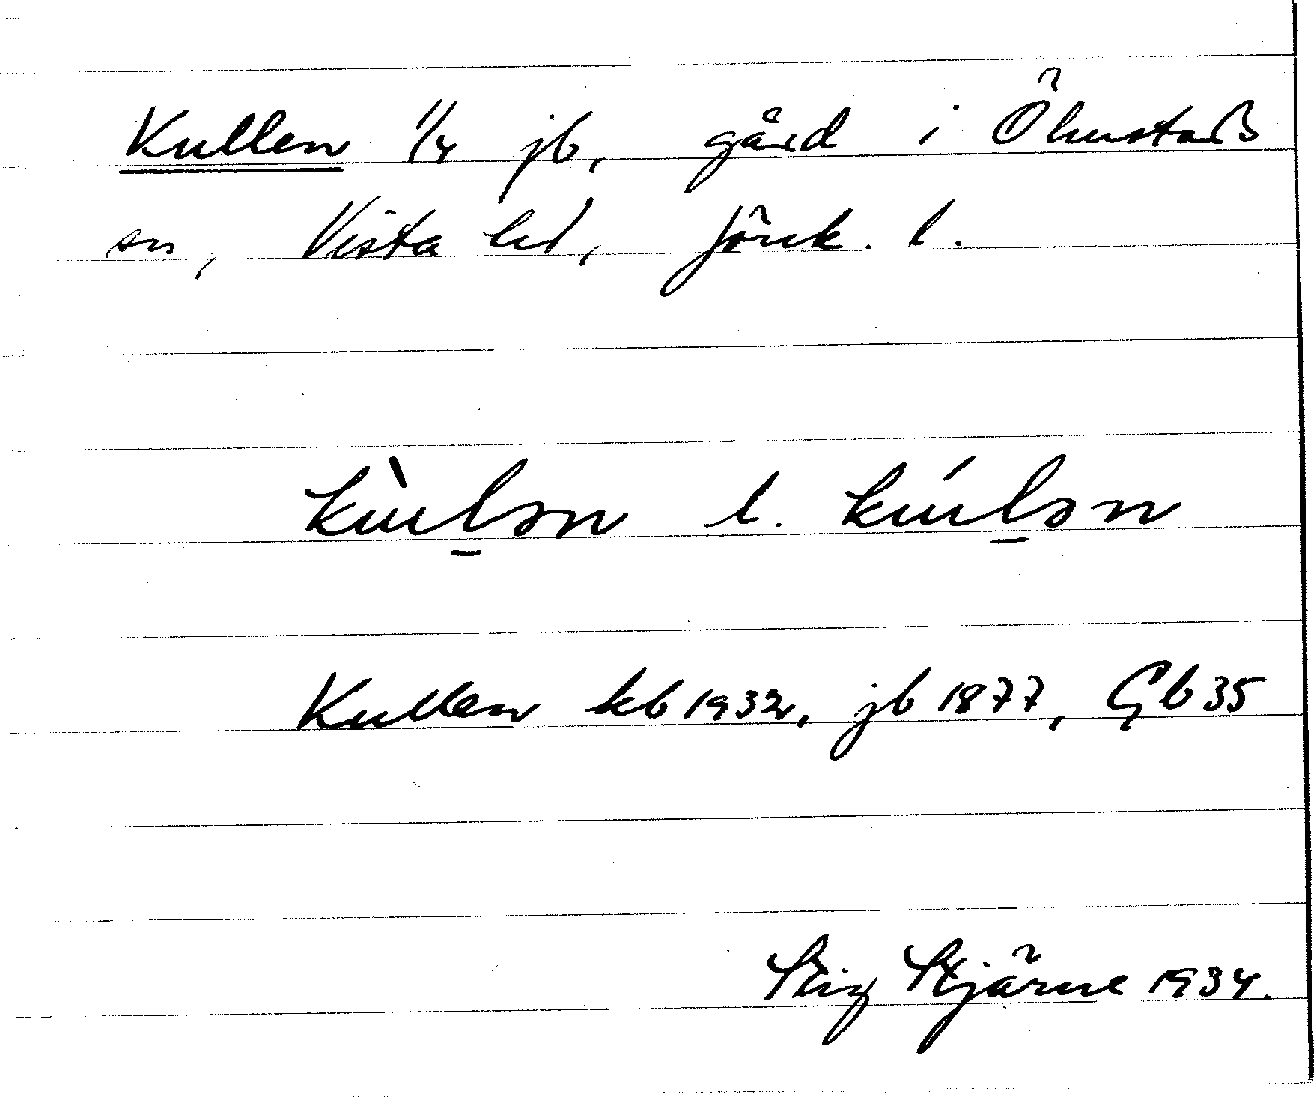 Kullen 1/4 jb, gård i Ölmstads
sn, Vista hd, Jönk. l.
kùḻən l. kúḻən
Kullen kb 1932, jb 1877, Gb 35
Stig Stjärne 1934.